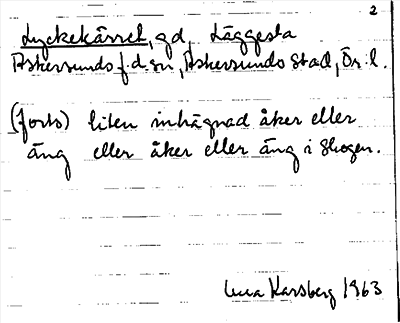 2
Lyckekärret, gd, Läggesta
Askersunds f.d. sn, Askersunds stad, Ör. l.
(forts) liten inhägnad åker eller
äng eller åker eller äng i skogen.
Karsberg 1963